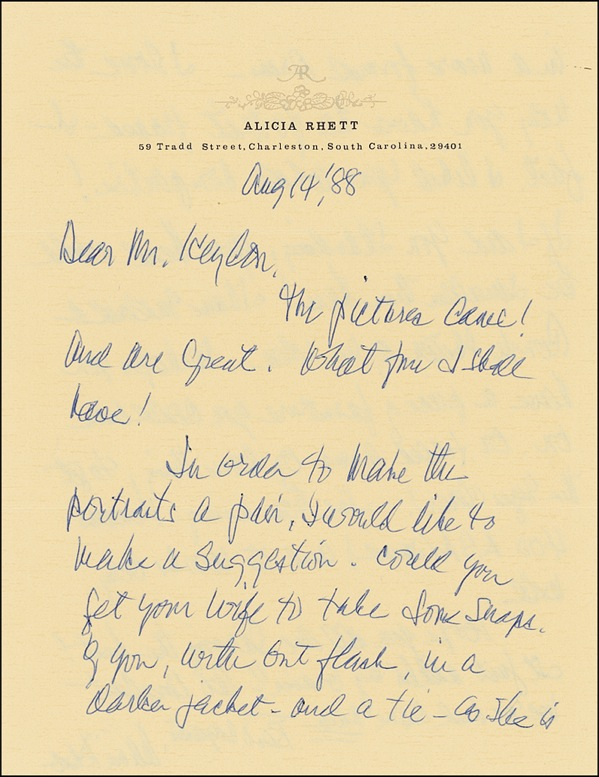 AR
ALICIA RHETT
59 Tradd Street, Charleston, South Carolina, 29401
Aug 14, '88
Dear Mr.
The pictures came!
And are great. What fun I shall
have!
In order to make the
portraits a pair, I would like to
make a suggestion. Could you
get your wife to take some snaps.
of you, with out flash, in a
darker jacket - and a tie - as she is